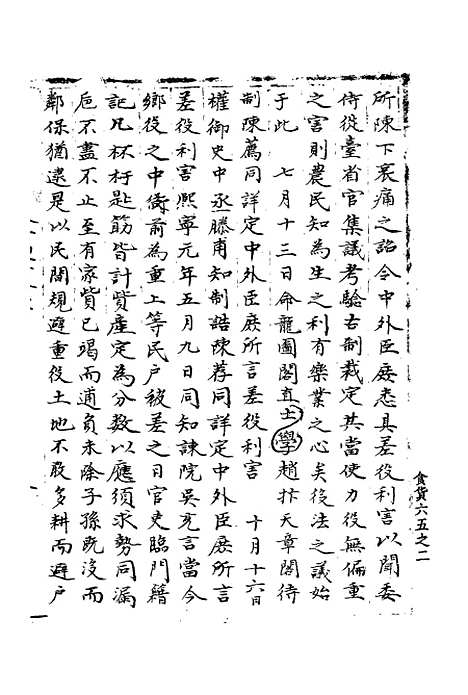 所陳下哀痛之詔令中外臣庶悉具差役利害以聞委
侍從臺省官集議考驗古制裁定其當使力役無偏重
之害則農民知為生之利有樂業之心矣役法之議始
于此　七月十三日命龍圖閣直士學趙抃天章閣待
制陳薦同詳定中外臣庶所言差役利害　十月十六日
權御史中丞滕甫知制誥陳荐同詳定中外臣庶所言
差役利害熙寧元年五月九日同知諫院吳充言當今
鄉役之中衙前為重上等民戶被差之日官吏臨門籍
記凡杯杅匙筯皆計貲產定為分數以應須求勢同漏
巵不盡不止至有家貲已竭而逋負未除子孫既沒而
鄰保猶逮是以民間規避重役土地不敢多耕而避戶
食貨六五之二